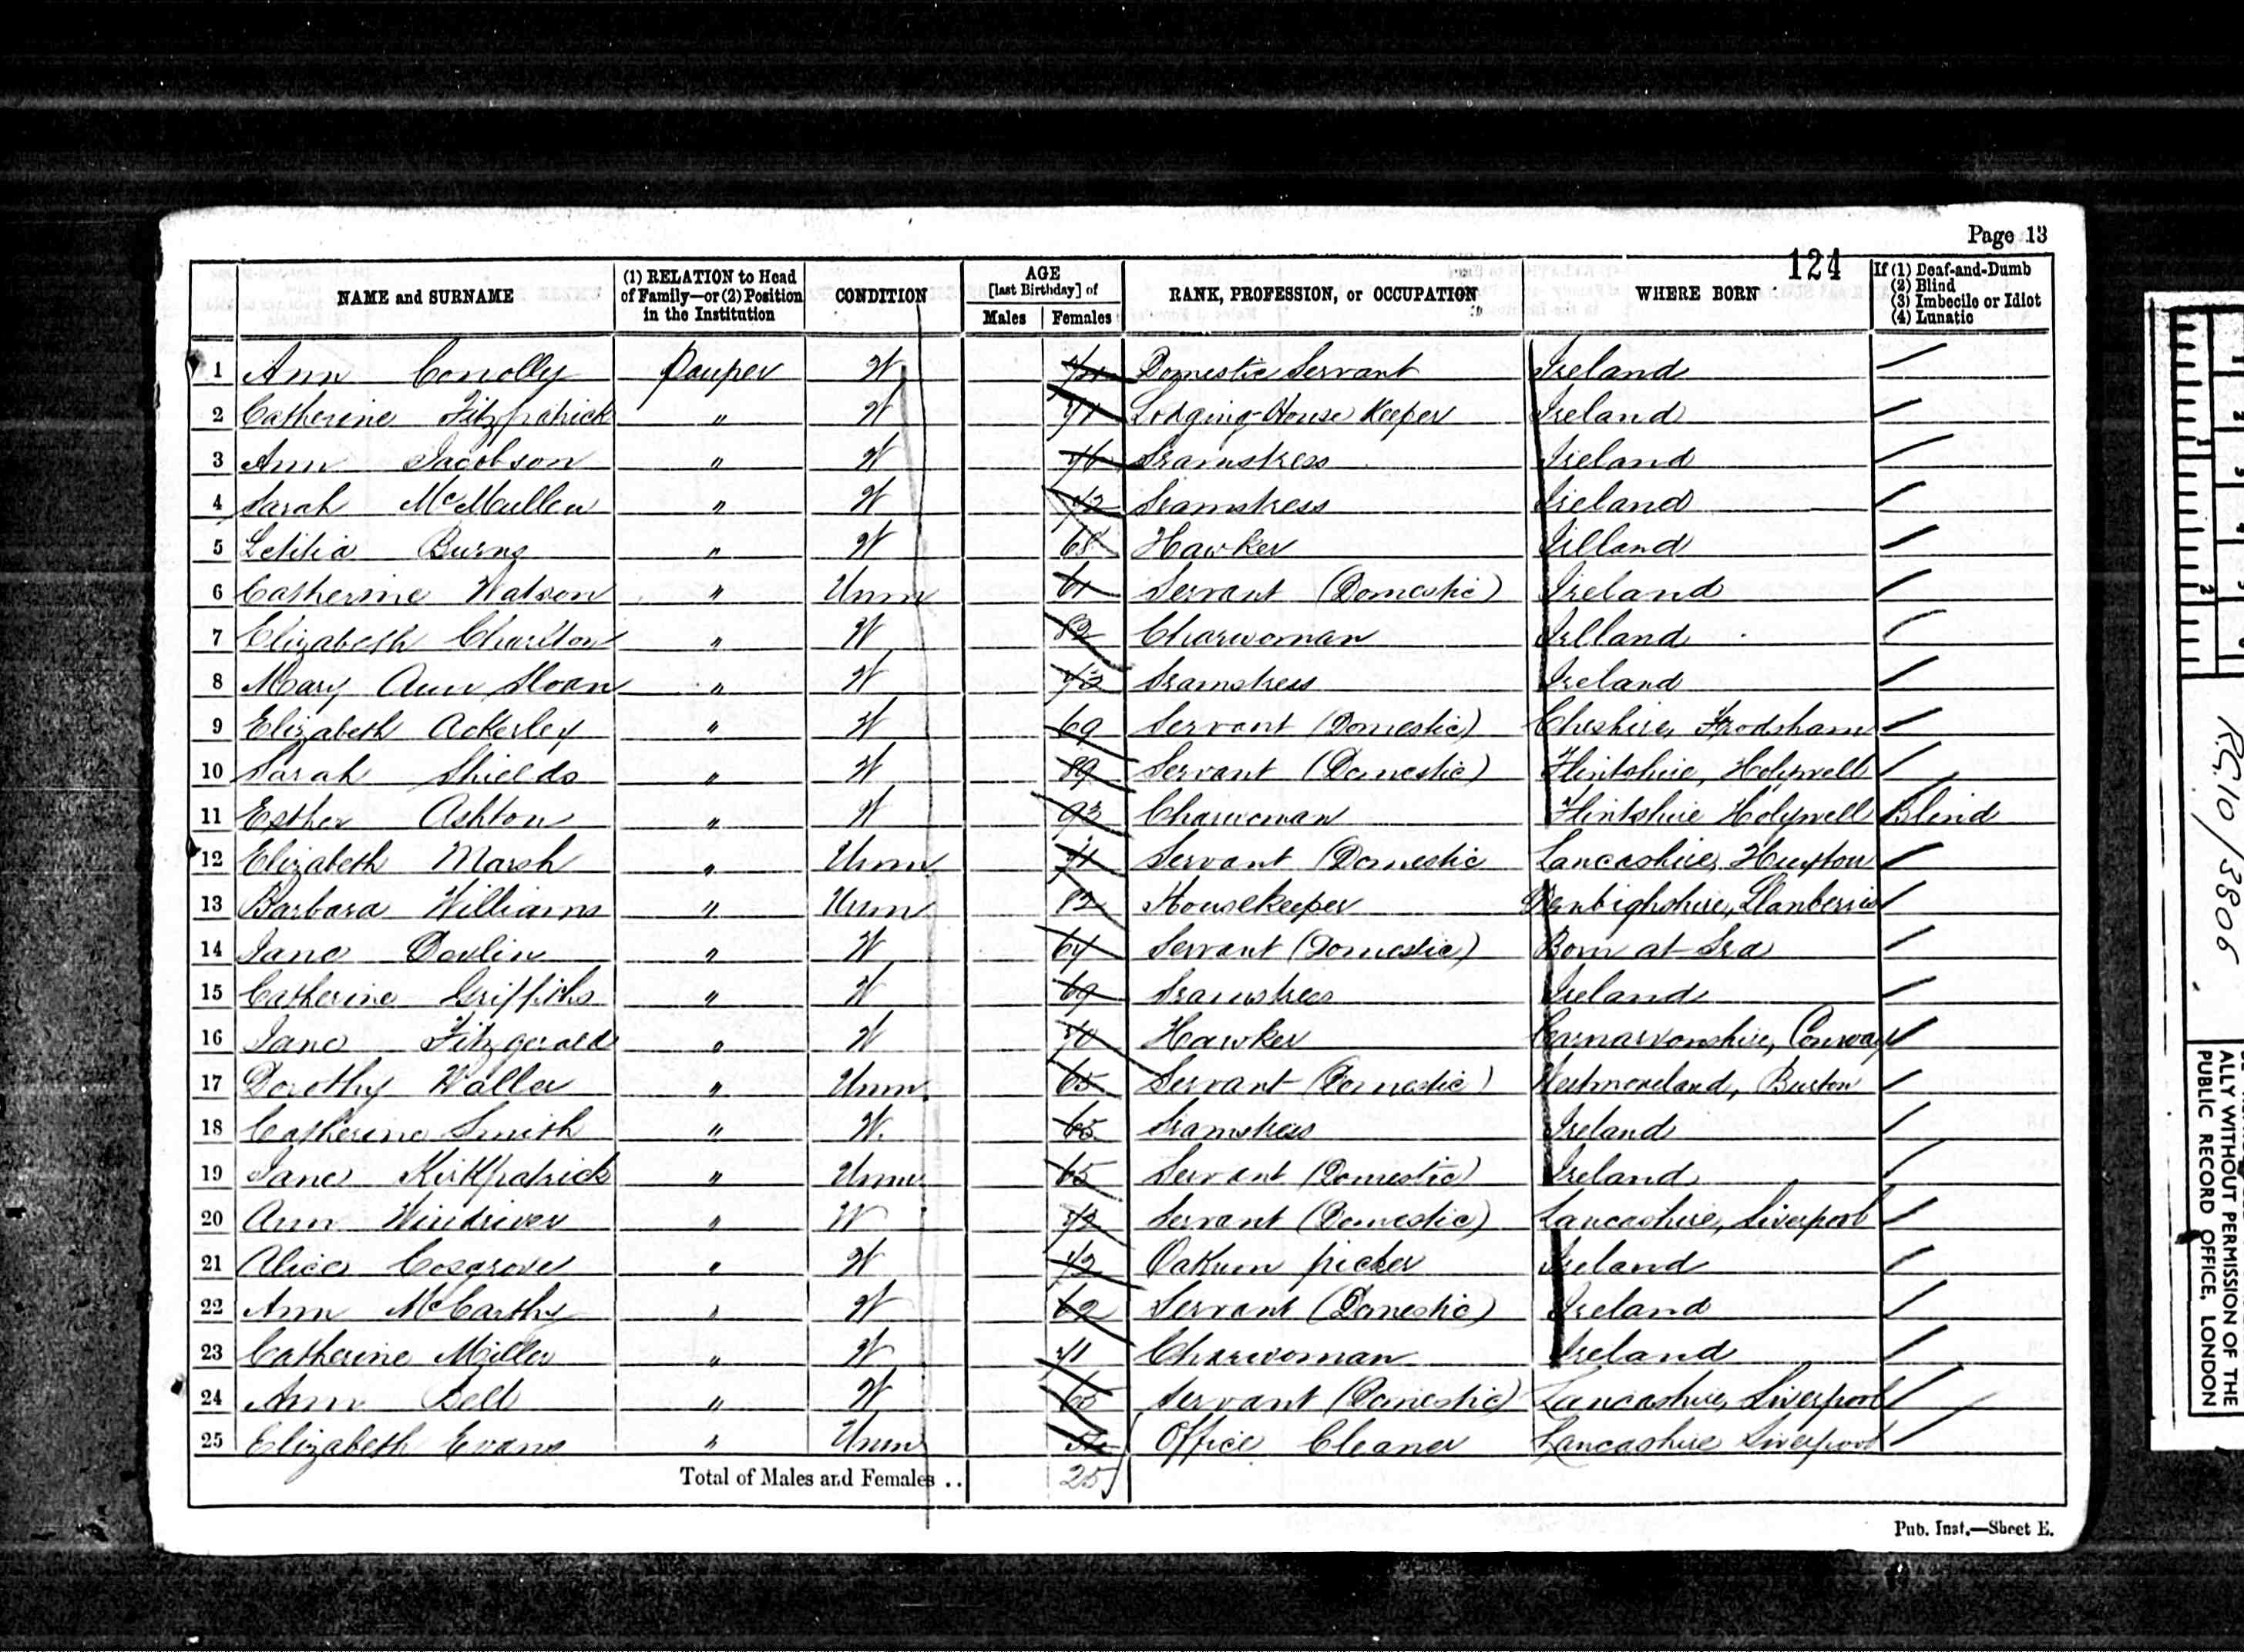 Page 13
124
NAME and SURNAME (1) RELATION to Head of Family—or (2) Position in the Institution CONDITION AGE [last Birthday] of Males Females RANK, PROFESSION, or OCCUPATION WHERE BORN If (1) Deaf-and-Dumb (2) Blind (3) Imbecile or Idiot (4) Lunatic
1 Ann Conolly Pauper W Domestic Servant Ireland
2 Catherine Fitzpatrick " W 71 Lodging-House Keeper Ireland
3 Ann Jacobson " W 76 Seamstress Ireland
4 Sarah McMullen " W 72 Seamstress Ireland
5 Letitia Burns " W 68 Hawker Ireland
6 Catherine Watson " Unm 61 Servant (Domestic) Ireland
7 Elizabeth Charlton " W 82 Charwoman Ireland
8 Mary Ann Sloan " W 73 Seamstress Ireland
9 Elizabeth Ackerley " W 69 Servant (Domestic) Cheshire, Frodsham
10 Sarah Shields " W 89 Servant (Domestic) Flintshire, Holywell
11 Esther Ashton " W 93 Charwoman Flintshire Holywell Blind
12 Elizabeth Marsh " Unm 71 Servant (Domestic Lancashire, Huyton
13 Barbara Williams " Unm 82 Housekeeper Denbighshire, Llanberris
14 Jane Devlin " W 64 Servant (Domestic) Born at Sea
15 Catherine Griffiths " W 69 Seamstress Ireland
16 Jane Fitzgerald " W 70 Hawker Carnarvonshire, Conway
17 Dorothy Waller " Unm 65 Servant (Domestic) Westmoreland, Burton
18 Catherine Smith " W. 65 Seamstress Ireland
19 Jane Kirkpatrick " Unm 65 Servant (Domestic) Ireland
20 Ann Windriver " W 72 Servant (Domestic) Lancashire, Liverpool
21 Alice Cosgrove " W 72 Oakum picker Ireland
22 Ann McCarthy " W 62 Servant (Domestic) Ireland
23 Catherine Miller " W 71 Charwoman Ireland
24 Ann Bell " W 65 Servant (Domestic) Lancashire, Liverpool
25 Elizabeth Evans " Unm Office Cleaner Lancashire Liverpool
Total of Males and Females .. 25
Pub. Inst.—Sheet E.
R.G. 10/3806
ALLY WITHOUT PERMISSION OF THE
PUBLIC RECORD OFFICE, LONDON